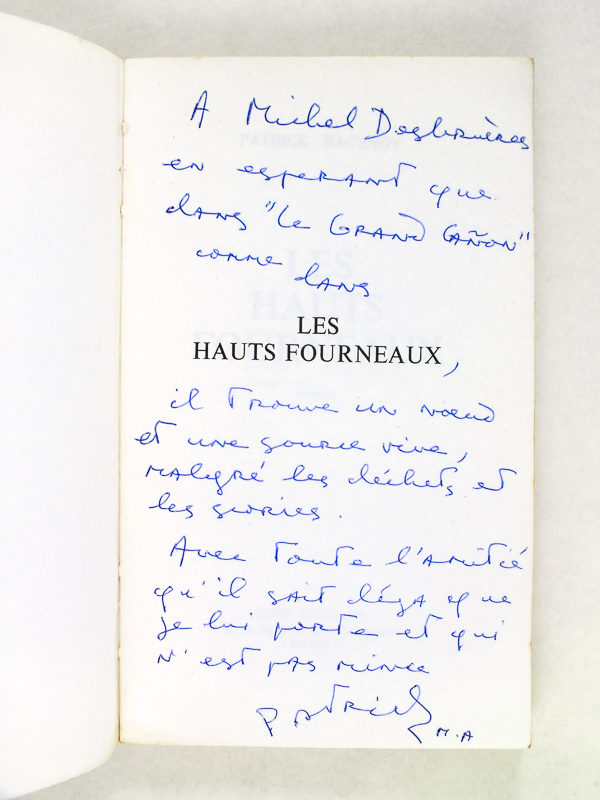 A Michel Desbruères
en esperant que
dans "Le Grand Cañon"
comme dans
LES
HAUTS FOURNEAUX,
il trouve un nœud
et une source vive,
malgré les déchets et
les scories.
Avec toute l'amitié
qu'il sait déja que
je lui porte et qui
n'est pas mince
Patrick
M.A